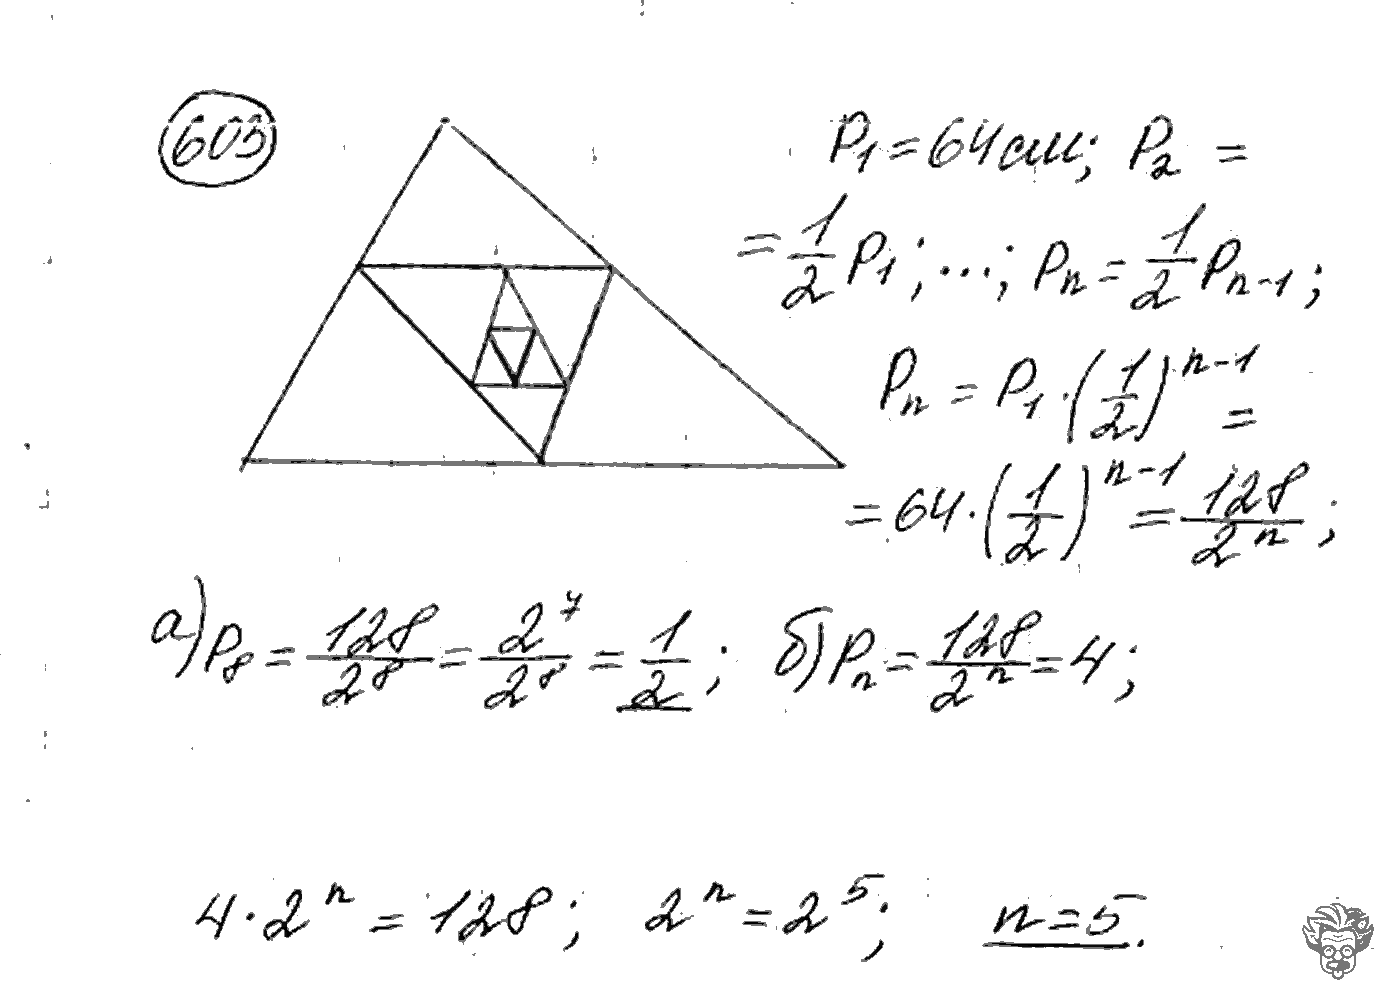 605
P₁ = 64 см; P₂ =
= 1/2 P₁; ...; Pₙ = 1/2 Pₙ₋₁;
Pₙ = P₁ · (1/2)ⁿ⁻¹ =
= 64 · (1/2)ⁿ⁻¹ = 128/2ⁿ;
а) P₈ = 128/2⁸ = 2⁷/2⁸ = 1/2; б) Pₙ = 128/2ⁿ = 4;
4 · 2ⁿ = 128; 2ⁿ = 2⁵; n = 5.